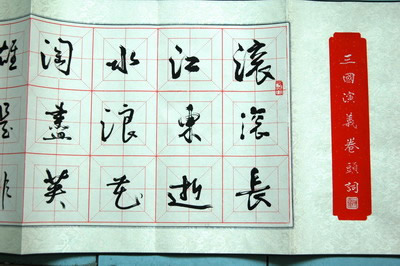 三國演義卷頭詞
滚滚長
江東逝
水浪花
淘盡英
雄是非